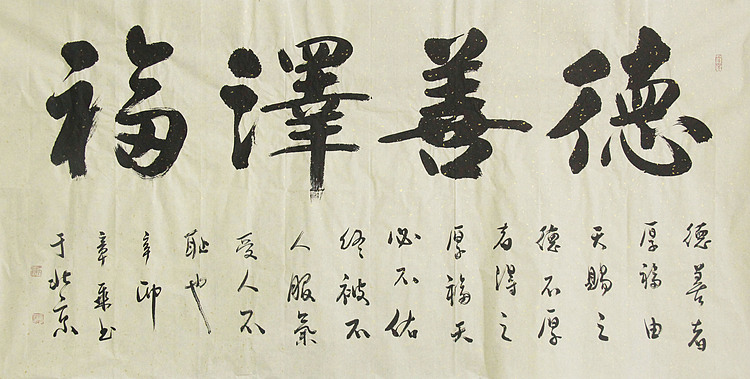 德善澤福
德善者
厚福由
天賜之
德不厚
者得之
厚福天
必不佑
終被不
人服氣
受人不
耻也
辛卯
章书
于北京